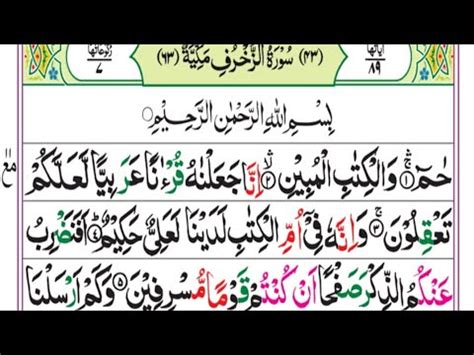 اٰیاتها ٨٩
(٤٣) سُوۡرَةُ الزُّخۡرُفِ مَكِّيَّةٌ (٦٣)
رکوعاتها ٧
بِسۡمِ اللهِ الرَّحۡمٰنِ الرَّحِيۡمِ
حٰمٓ ۚ‏ۛ ١ وَالۡكِتٰبِ الۡمُبِيۡنِ ۙ‏ۛ ٢ اِنَّا جَعَلۡنٰهُ قُرۡءٰنًا عَرَبِيًّا لَّعَلَّكُمۡ
تَعۡقِلُوۡنَ ۚ ٣ وَاِنَّهٗ فِىۡۤ اُمِّ الۡكِتٰبِ لَدَيۡنَا لَعَلِىٌّ حَكِيۡمٌ ؕ ٤ اَفَنَضۡرِبُ
عَنۡكُمُ الذِّكۡرَ صَفۡحًا اَنۡ كُنۡتُمۡ قَوۡمًا مُّسۡرِفِيۡنَ ٥ وَكَمۡ اَرۡسَلۡنَا